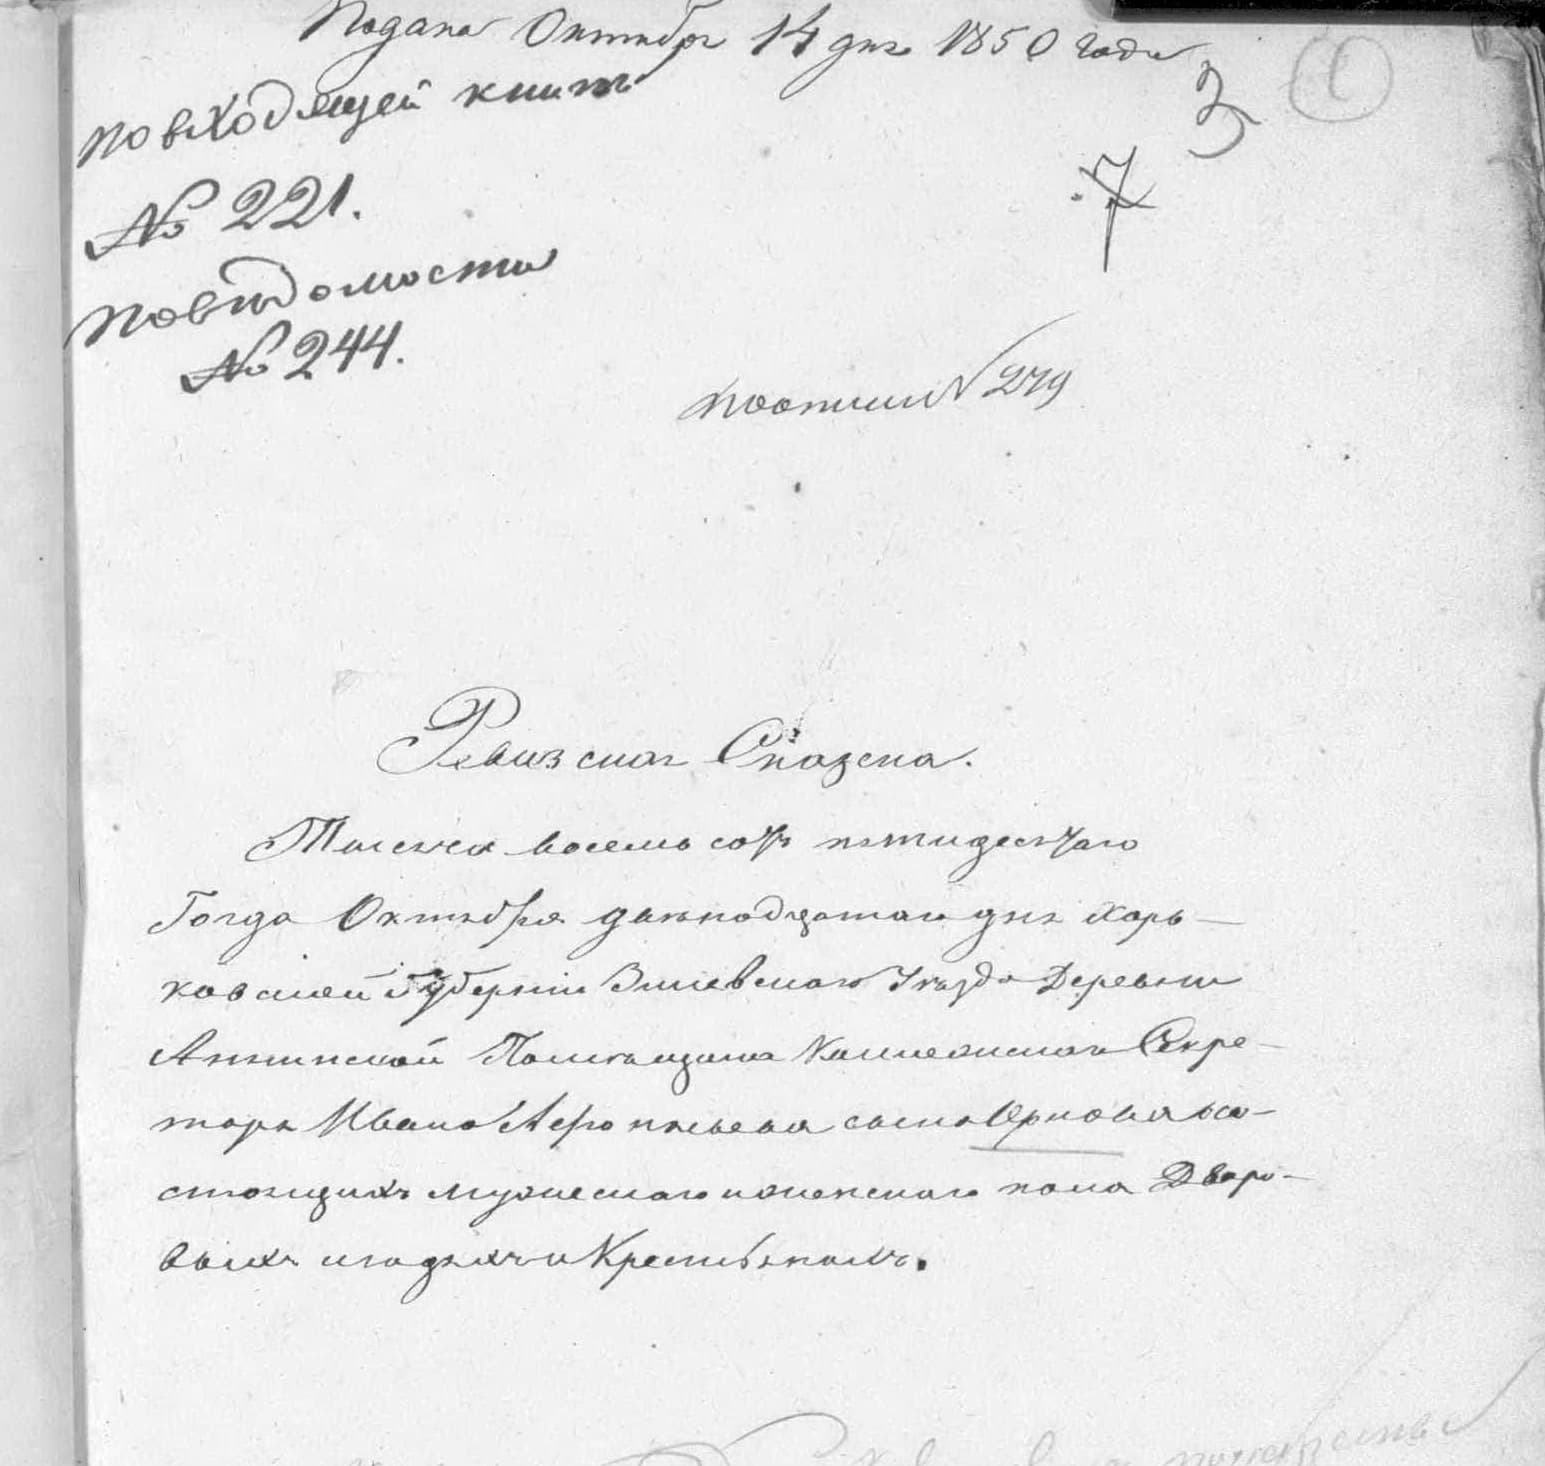 Подана Октября 14 дня 1850 года
3
1
по входящей книге
7
№ 221.
По ведомости
№ 244.
По описи № 279
Ревизская Сказка.
Тысяча восемь сотъ пятидесятаго
Года Октября двенадцатаго дня Харь-
ковской Губерніи Зміевскаго Уезда Деревни
Аннинской Помещика Коллежскаго Секре-
таря Ивана сына о со-
стоящихъ мужескаго и женскаго пола Дворо-
выхъ людяхъ и Крестьянахъ.